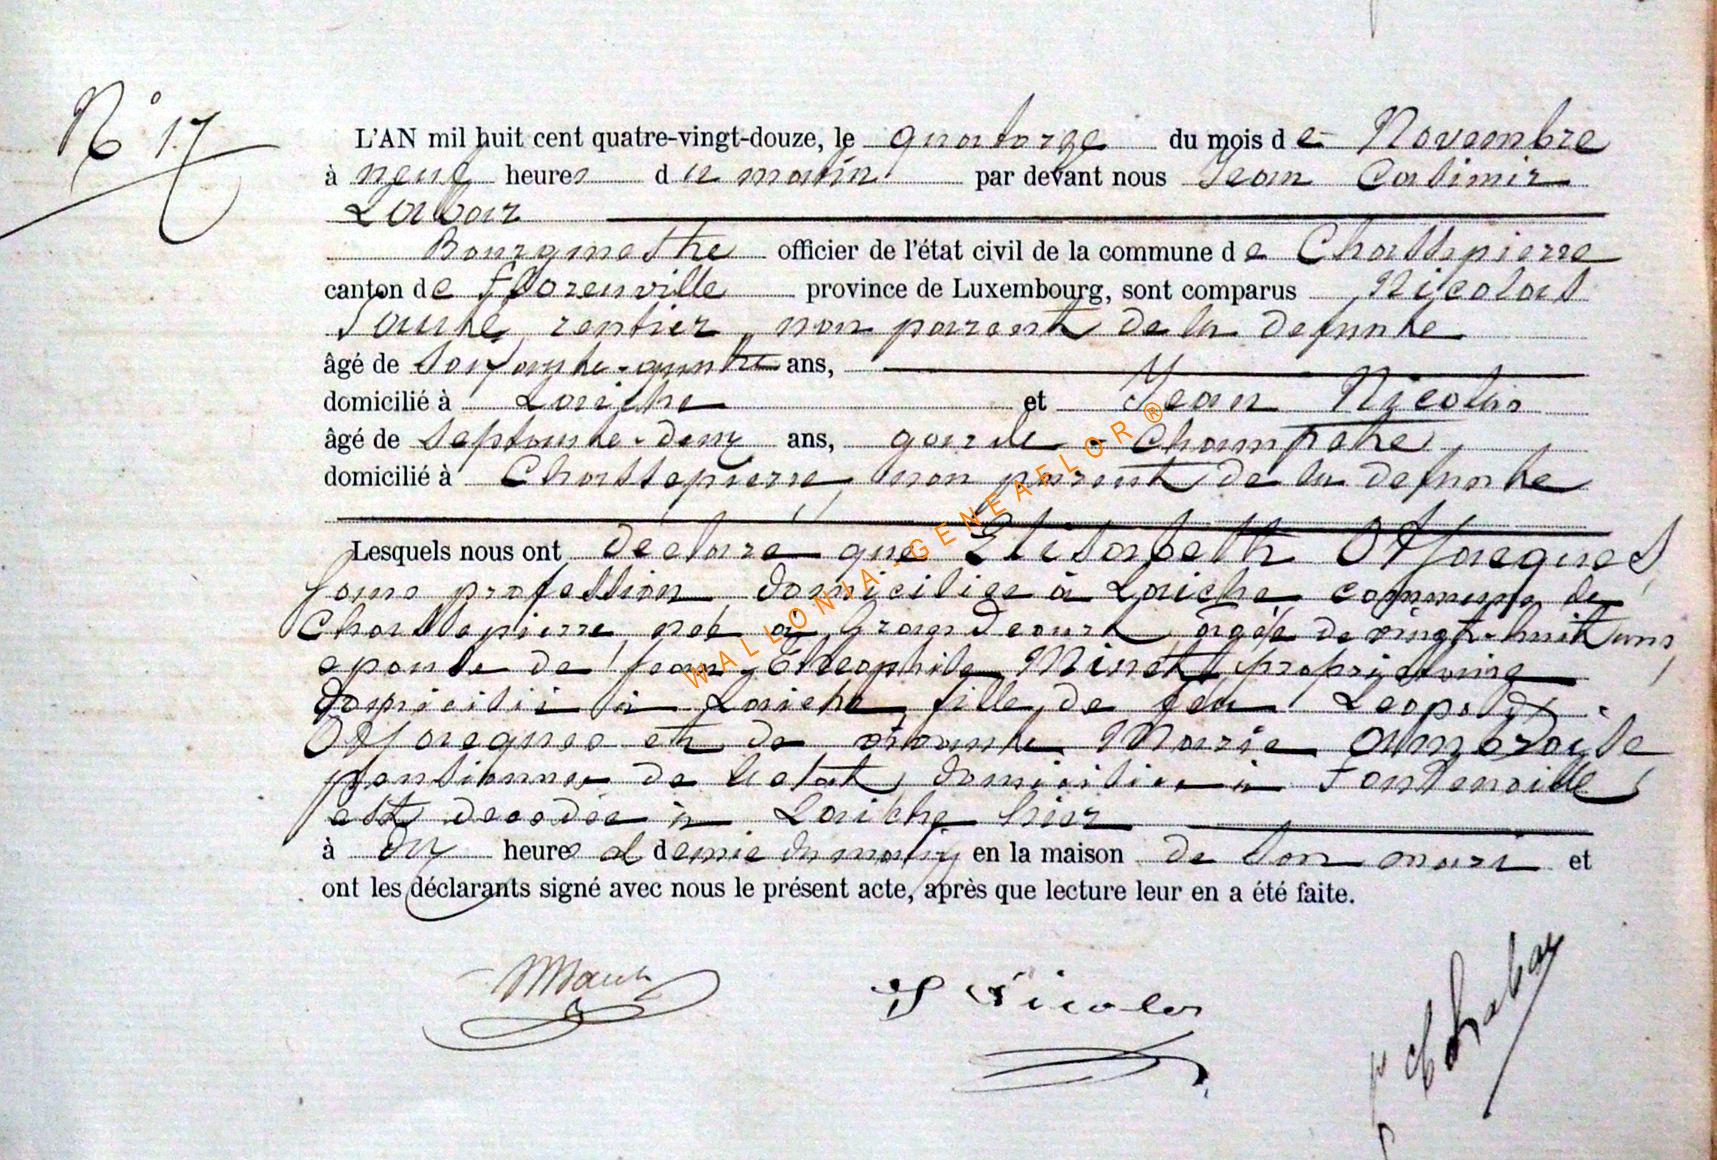 N° 17
L'AN mil huit cent quatre-vingt-douze, le quatorze du mois de Novembre
à neuf heures du matin par devant nous Jean Casimir
Labar
Bourgmestre officier de l'état civil de la commune de Chassepierre
canton de Florenville province de Luxembourg, sont comparus Nicolas
rentier, non parent de la defunte
âgé de ans,
domicilié à Laiche et Jean Nicolas
âgé de septante-deux ans, garde-Champetre,
domicilié à Chassepierre, non parent de la defunte
Lesquels nous ont declaré que Elisabeth
sans profession domiciliée à Laiche commune de
Chassepierre née à Grandcourt âgée de vingt-huit ans,
epouse de Jean Théophile Minet, propriétaire
domicilié à Laiche fille de feu Leopold
et de vivante Marie Ambroise
pensionnée de l'etat, domiciliée à Fontenoille,
est decedée à Laiche hier
à dix heures et demie du matin en la maison de son mari et
ont les déclarants signé avec nous le présent acte, après que lecture leur en a été faite.
J Nicolas
WALLONIA-GENEAFLOR®